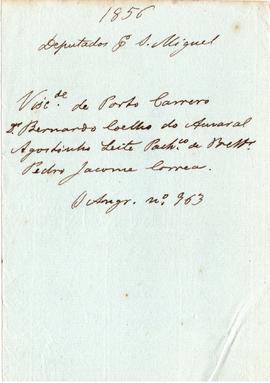 1856
Deputados p. S. Miguel
Visc.de de Porto Carrero
Dr. Bernardo Coelho do Amaral
Agostinho Leite Pach.co de Bett.
Pedro Jacome Correa.
O Angr. nº. 963